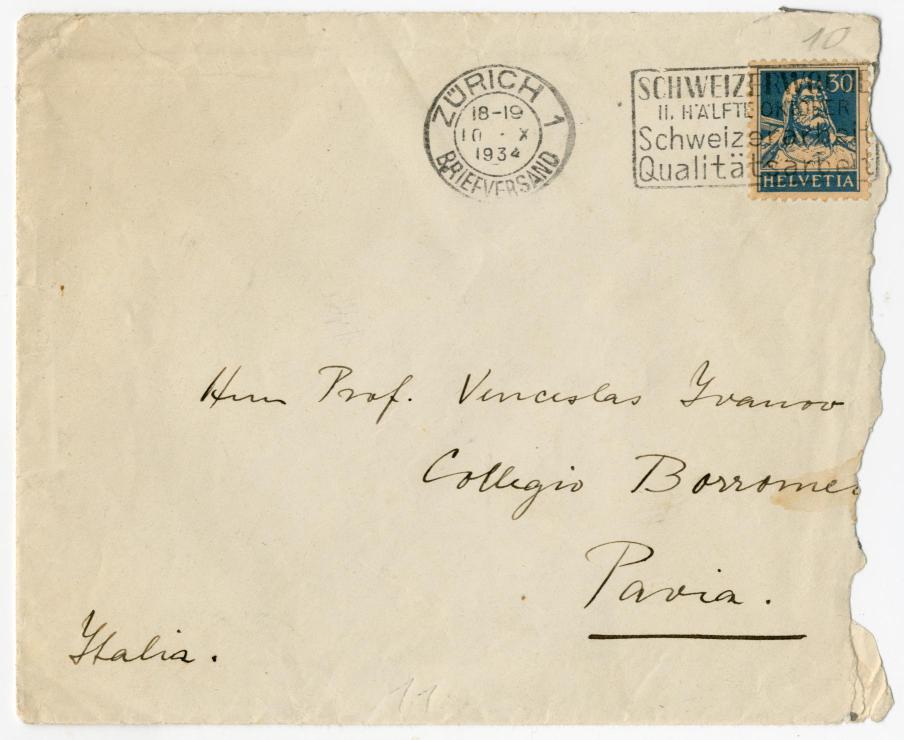 10
ZÜRICH 1
18-19
10 · X
1934
BRIEFVERSAND
SCHWEIZERWOCHE
II. HÄLFTE OKTOBER
Schweizerarbeit
Qualitätsarbeit
30
HELVETIA
Herrn Prof. Venceslas Ivanov
Collegio Borromeo
Pavia.
Italia.
11